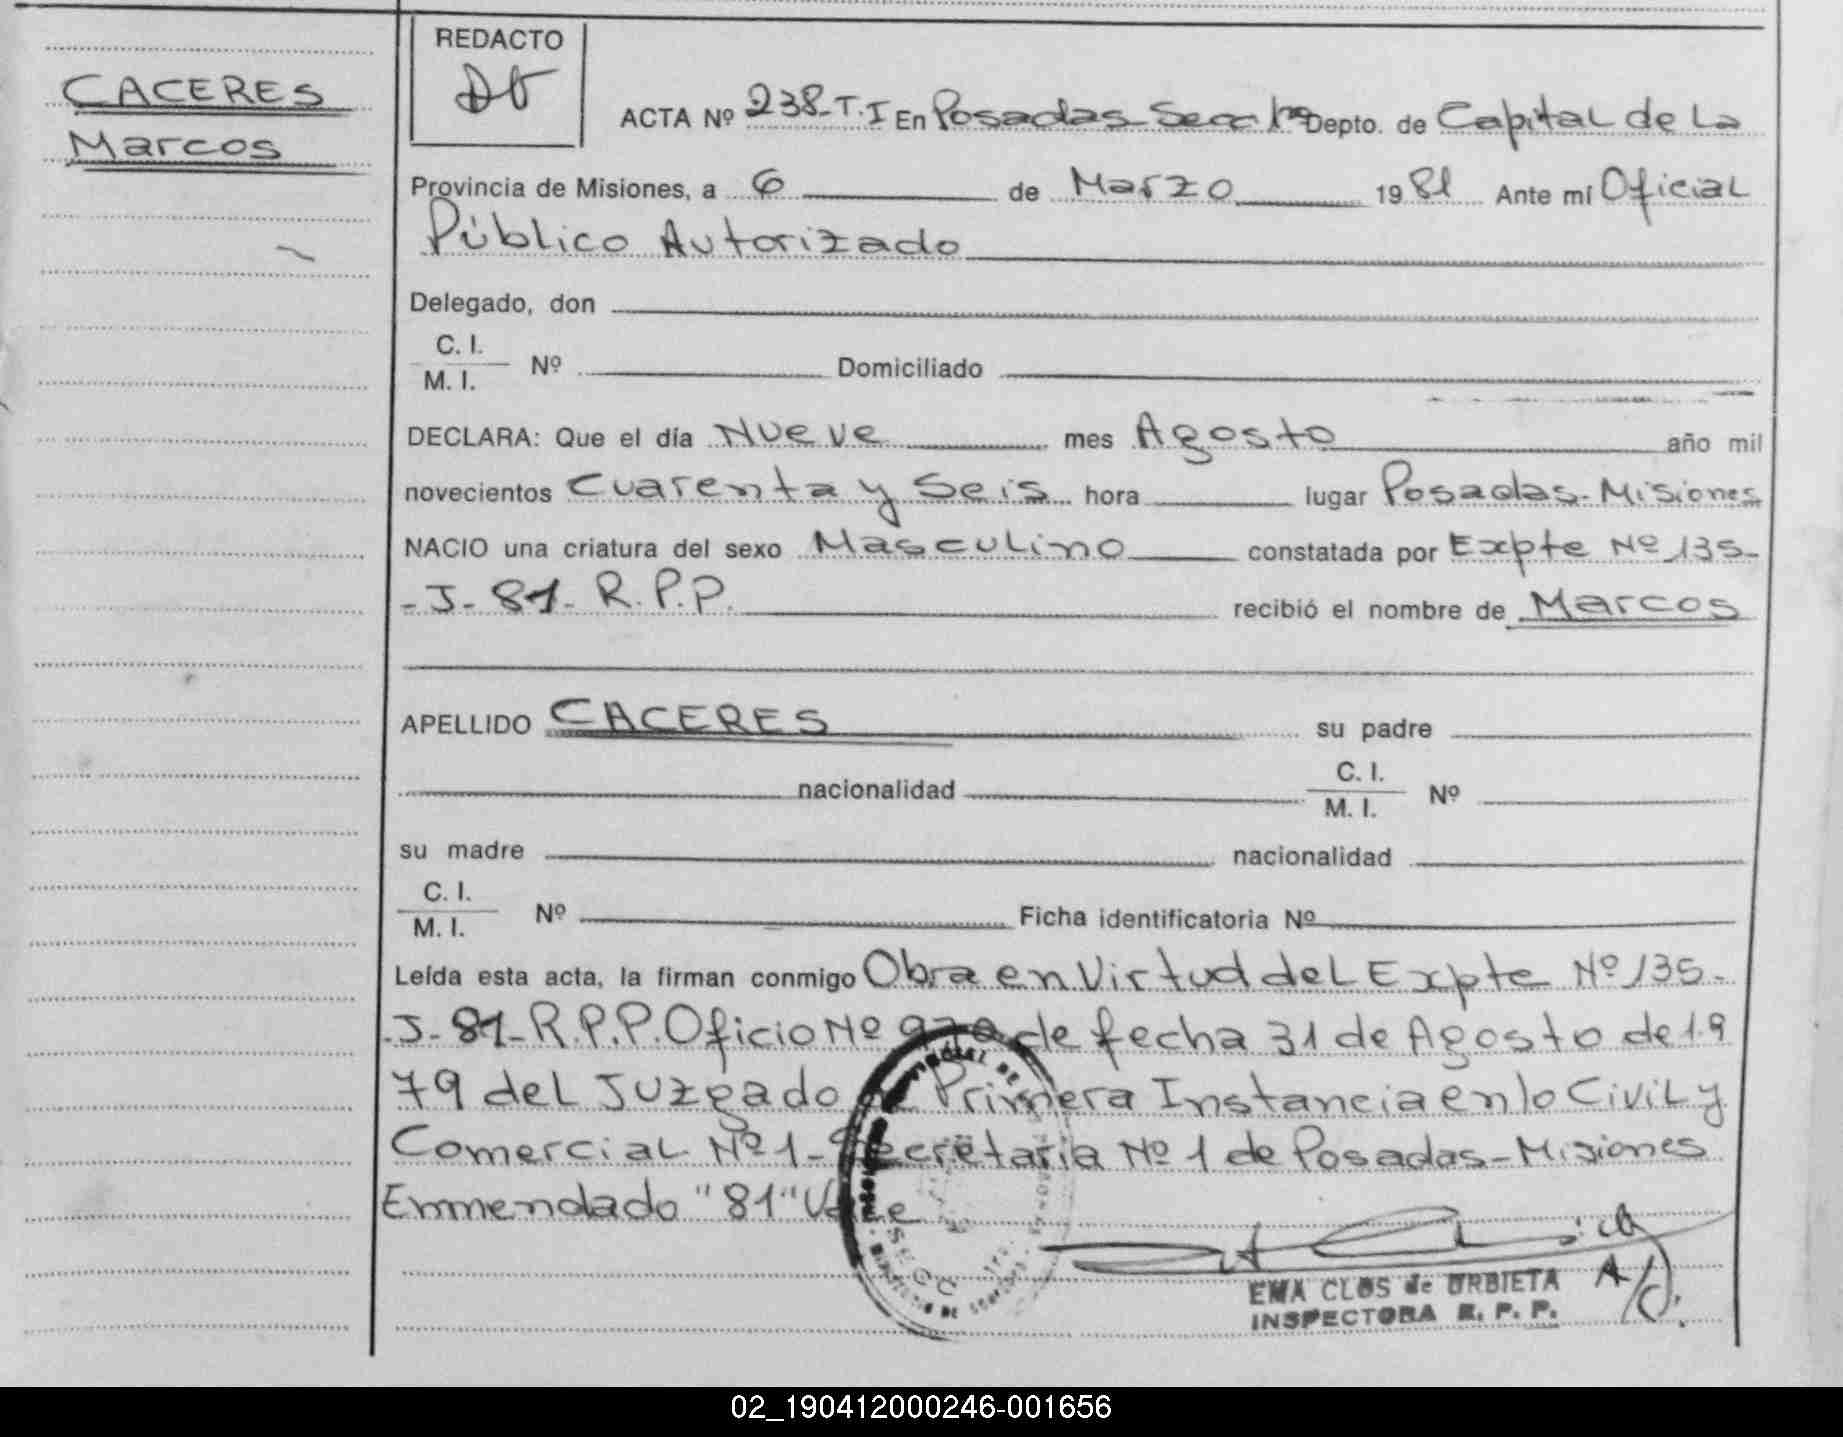 CACERES
Marcos
REDACTO
ACTA Nº 238-T.I En Posadas Secc 1ra Depto. de Capital de La
Provincia de Misiones, a 6 de Marzo 1981 Ante mí Oficial
Público Autorizado
Delegado, don
C. I.
M. I. Nº Domiciliado
DECLARA: Que el día Nueve mes Agosto año mil
novecientos Cuarenta y Seis hora lugar Posadas-Misiones
NACIO una criatura del sexo Masculino constatada por Expte Nº 135-
-J-81-R.P.P. recibió el nombre de Marcos
APELLIDO CACERES su padre
nacionalidad C. I.
M. I. Nº
su madre nacionalidad
C. I.
M. I. Nº Ficha identificatoria Nº
Leída esta acta, la firman conmigo Obra en Virtud del Expte Nº 135-
-J-81-R.P.P. Oficio Nº de fecha 31 de Agosto de 19
79 del Juzgado de Primera Instancia en lo Civil y
Comercial Nº 1-Secretaria Nº 1 de Posadas-Misiones
Enmendado "81" Vale
EMA CLOS de URBIETA
INSPECTORA R. P. P.
02_190412000246-001656